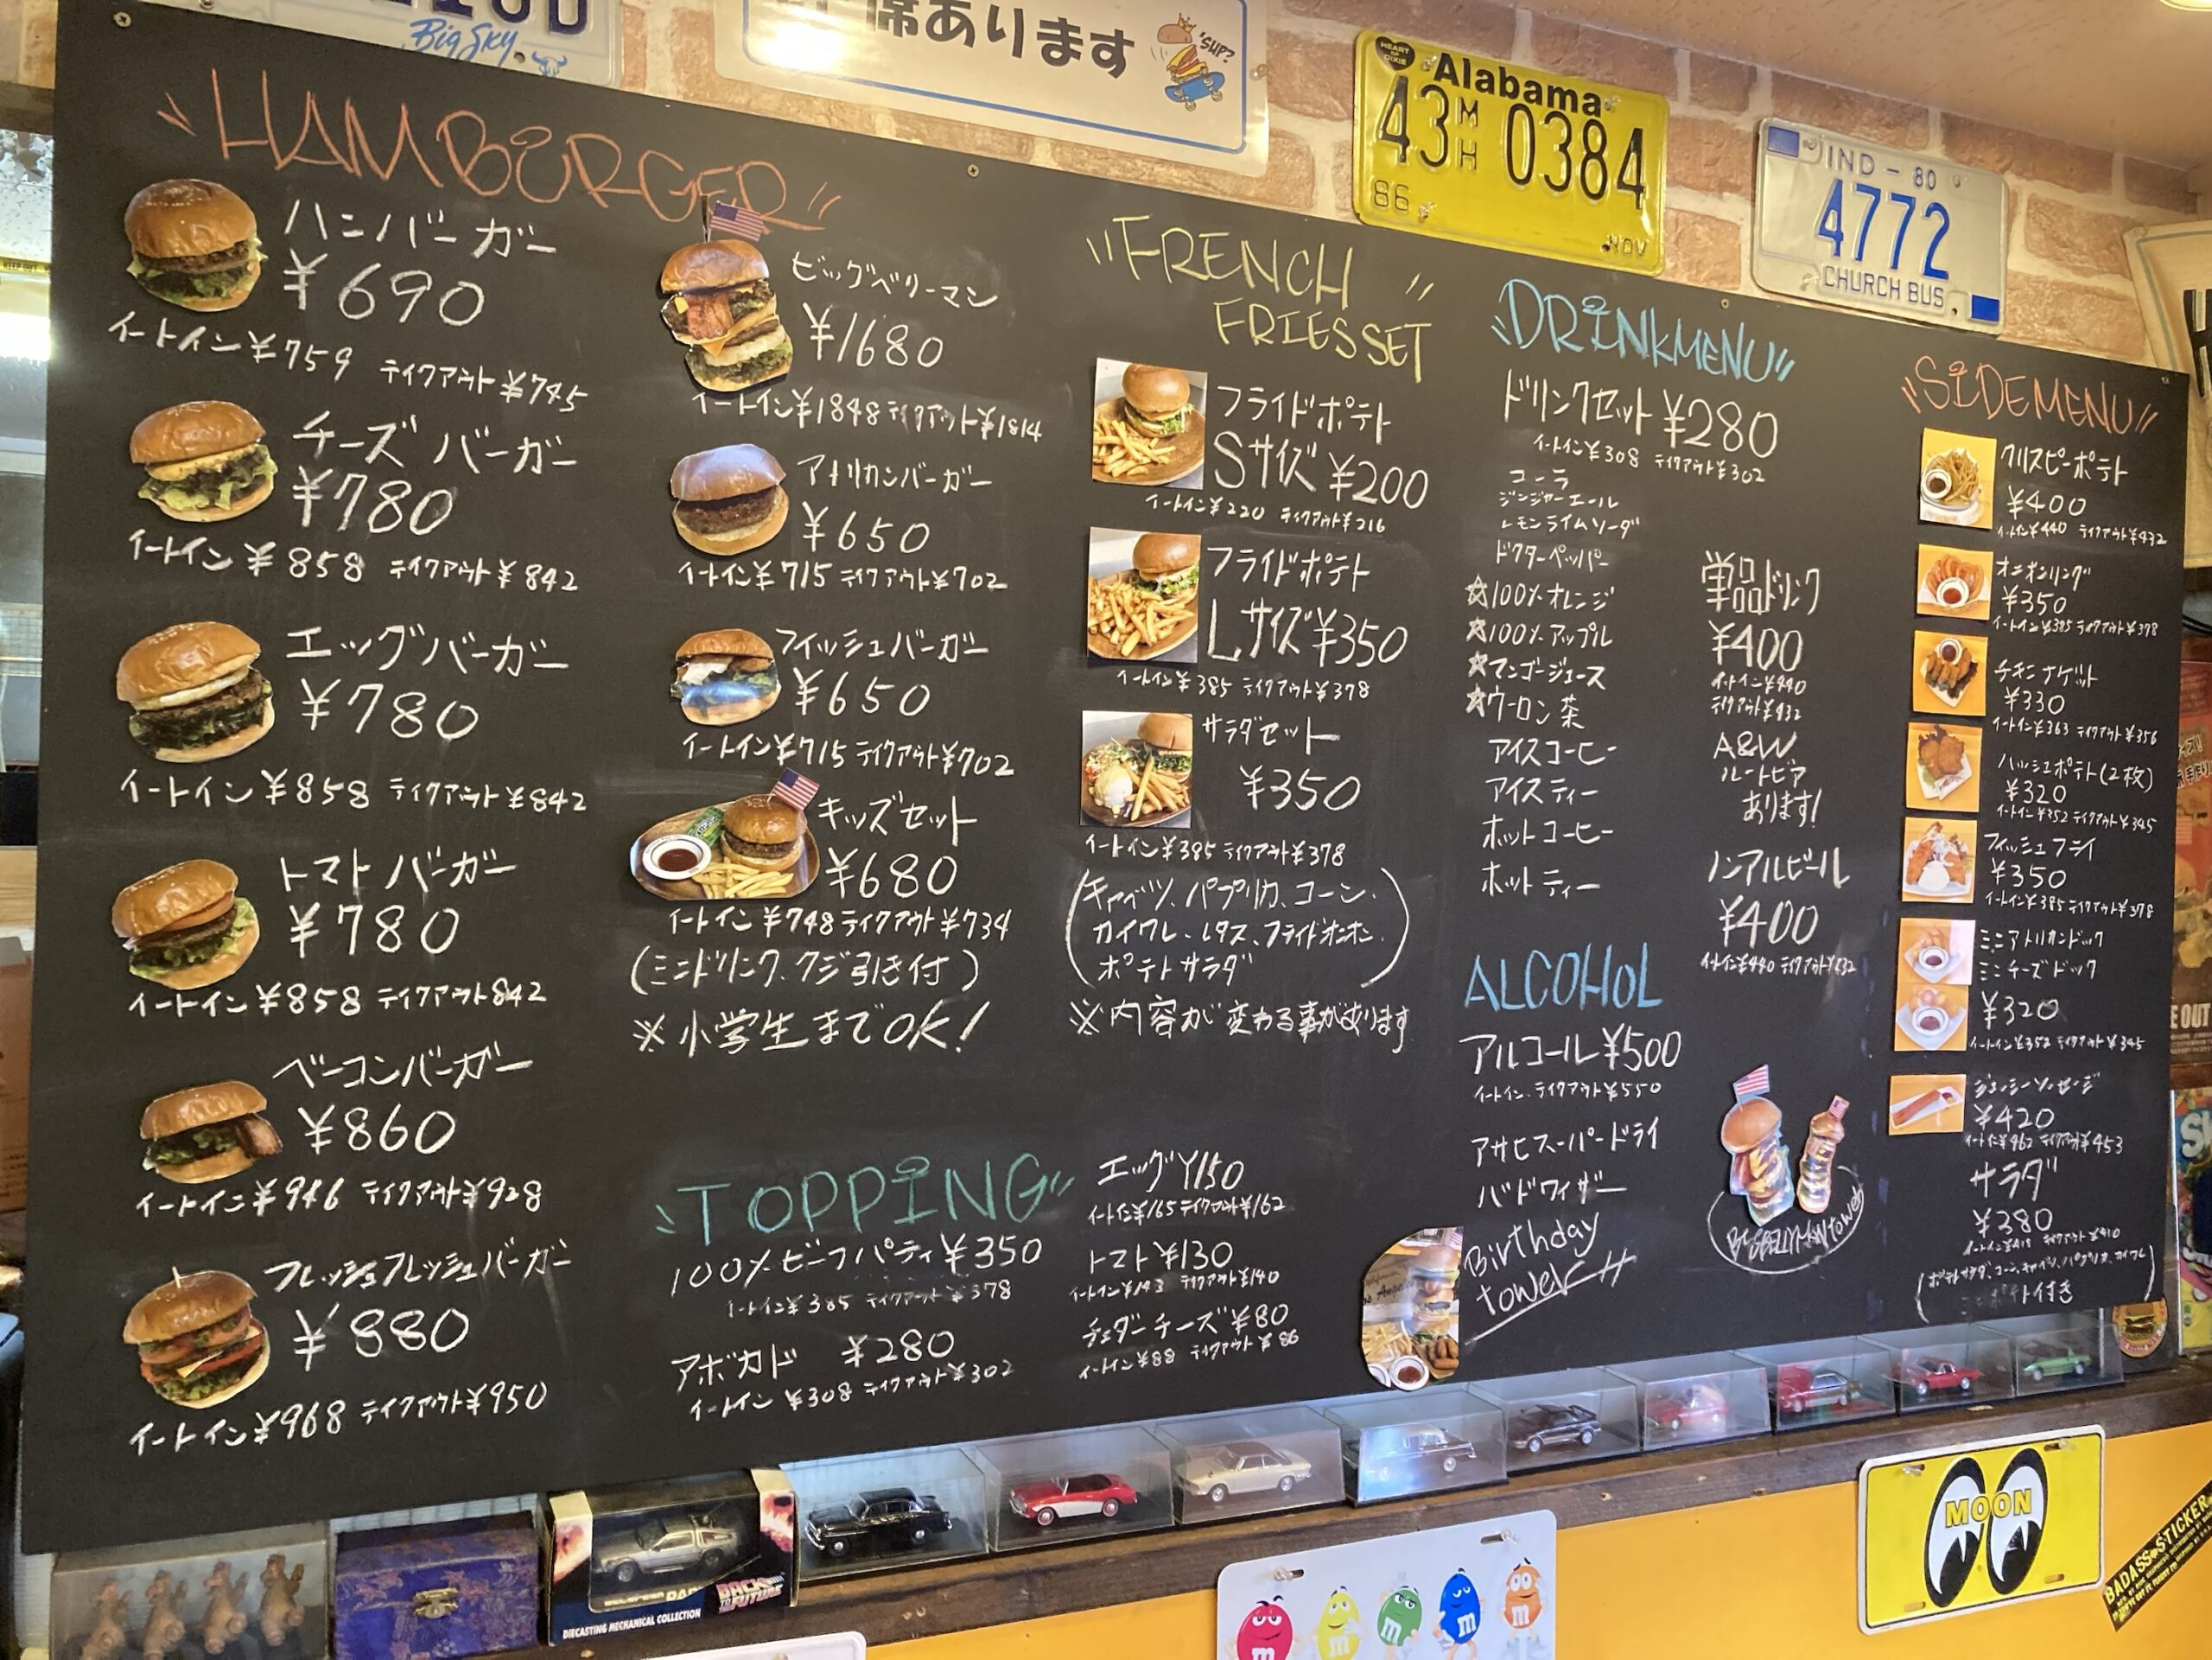 Big Sky
席あります
'SUP?
HEART OF DIXIE
Alabama
43 MH 0384
86
NOV
IND - 80
4772
CHURCH BUS
HAMBURGER
ハンバーガー
¥690
イートイン¥759 テイクアウト¥745
チーズバーガー
¥780
イートイン¥858 テイクアウト¥842
エッグバーガー
¥780
イートイン¥858 テイクアウト¥842
トマトバーガー
¥780
イートイン¥858 テイクアウト842
ベーコンバーガー
¥860
イートイン¥946 テイクアウト¥928
フレッシュフレッシュバーガー
¥880
イートイン¥968 テイクアウト¥950
ビッグベリーマン
¥1680
イートイン¥1848 テイクアウト¥1814
アメリカンバーガー
¥650
イートイン¥715 テイクアウト¥702
フィッシュバーガー
¥650
イートイン¥715 テイクアウト¥702
キッズセット
¥680
イートイン¥748 テイクアウト¥734
(ミニドリンク、クジ引き付)
※小学生までOK!
TOPPING
100%ビーフパティ¥350
イートイン¥385 テイクアウト¥378
アボカド ¥280
イートイン ¥308 テイクアウト¥302
エッグ¥150
イートイン¥165 テイクアウト¥162
トマト¥130
イートイン¥143 テイクアウト¥140
チェダーチーズ¥80
イートイン¥88 テイクアウト¥86
FRENCH
FRIES SET
フライドポテト
Sサイズ ¥200
イートイン¥220 テイクアウト¥216
フライドポテト
Lサイズ ¥350
イートイン¥385 テイクアウト¥378
サラダセット
¥350
イートイン¥385 テイクアウト¥378
(キャベツ、パプリカ、コーン、
カイワレ、レタス、フライドオニオン、
ポテトサラダ)
※内容が変わる事があります
DRINKMENU
ドリンクセット¥280
イートイン¥308 テイクアウト¥302
コーラ
ジンジャーエール
レモンライムソーダ
ドクターペッパー
☆100%オレンジ
☆100%アップル
☆マンゴージュース
☆ウーロン茶
アイスコーヒー
アイスティー
ホットコーヒー
ホットティー
単品ドリンク
¥400
イートイン¥440
テイクアウト¥432
A&W
ルートビア
あります!
ノンアルビール
¥400
イートイン¥440 テイクアウト¥432
ALCOHOL
アルコール¥500
イートイン、テイクアウト¥550
アサヒスーパードライ
バドワイザー
Birthday
tower
BIGBELLYMAN tower
SIDEMENU
クリスピーポテト
¥400
イートイン¥440 テイクアウト¥432
オニオンリング
¥350
イートイン¥385 テイクアウト¥378
チキンナゲット
¥330
イートイン¥363 テイクアウト¥356
ハッシュポテト(2枚)
¥320
イートイン¥352 テイクアウト¥345
フィッシュフライ
¥350
イートイン¥385 テイクアウト¥378
ミニアメリカンドック
ミニチーズドック
¥320
イートイン¥352 テイクアウト¥345
ジューシーソーセージ
¥420
イートイン¥462 テイクアウト¥453
サラダ
¥380
イートイン¥418 テイクアウト¥410
(ポテトサラダ、コーン、キャベツ、パプリカ、カイワレ
付き
BACK TO THE FUTURE
DIECASTING MECHANICAL COLLECTION
MOON
BADASS STICKER
m
m
m
m
m